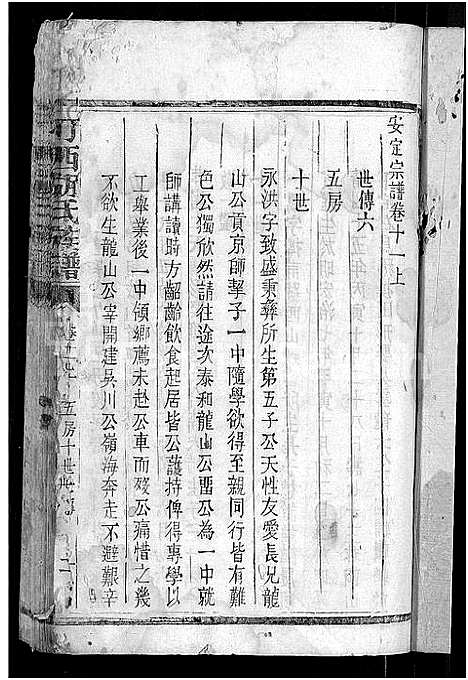 安定宗譜卷十一上
世傳六
五房
十世
永洪字致盛秉彝所生第五子公天性友愛長兄龍
山公貢京師挈子一中隨學欲得至親同行皆有難
色公獨欣然請往途次泰和龍山公畱公為一中就
師講讀時方齠齡飲食起居皆公護持俾得專學以
工舉業後一中領鄉薦未赴公車而歿公痛惜之幾
不欲生龍山公宰開建吳川公嶺海奔走不避艱辛
西胡氏族譜
五房十世